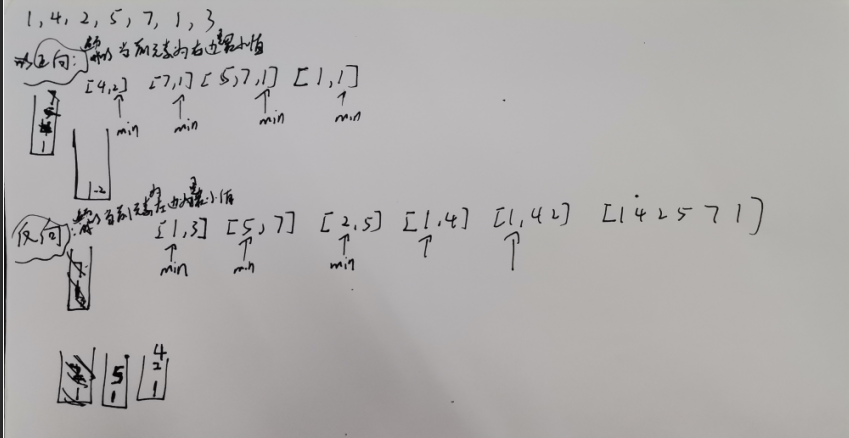 1, 4, 2, 5, 7, 1, 3
正向: 当前元素为右边界 最小值
[4,2] [7,1] [5,7,1] [1,1]
min min min min
1
1 2
反向: 当前元素为左边界 最小值
[1,3] [5,7] [2,5] [1,4] [1,4 2] [1 4 2 5 7 1]
min min min
4
5 2
1 1 1